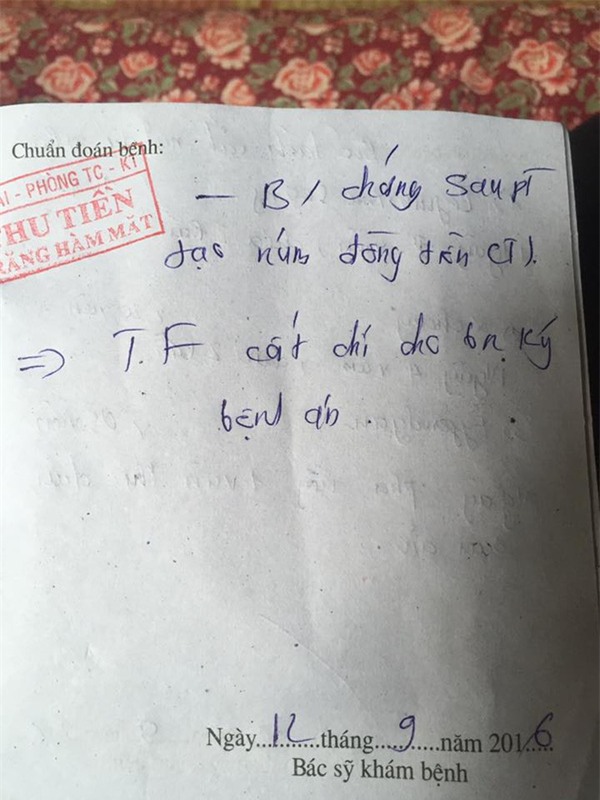 Chuẩn đoán bệnh:
AI - PHÒNG TC - KT
THU TIỀN
RĂNG HÀM MẶT
- B/ chứng sau pt
tạo núm đồng tiền (T).
=> T.F cắt chỉ cho bn ký
bệnh án
Ngày 12 tháng 9 năm 2016
Bác sỹ khám bệnh